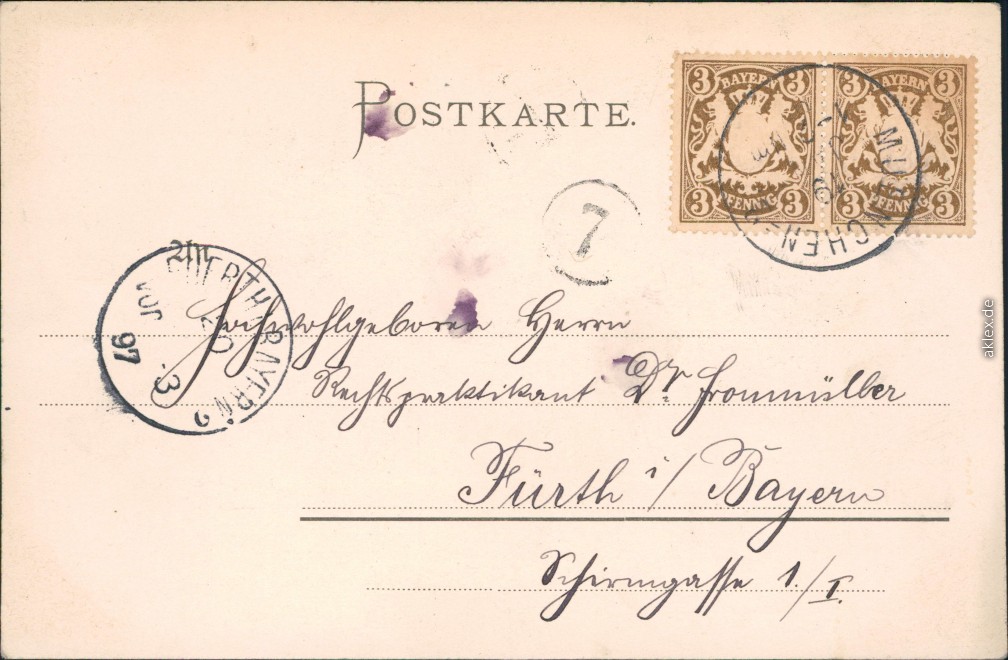 POSTKARTE.
3 BAYERN 3
3 PFENNIG 3
3 BAYERN 3
3 PFENNIG 3
MÜNCHEN
7
FUERTH (BAYERN) 2
3 NOV 97
Hochwohlgeboren Herrn
Rechtspraktikant Dr. Frommüller
Fürth i/Bayern
Schirmgasse 1./I.
aklex.de